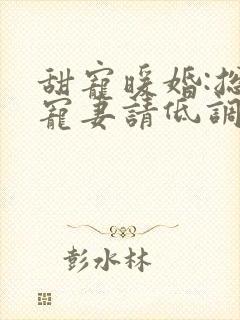 甜寵暖婚:總
寵妻請低調
彭水林